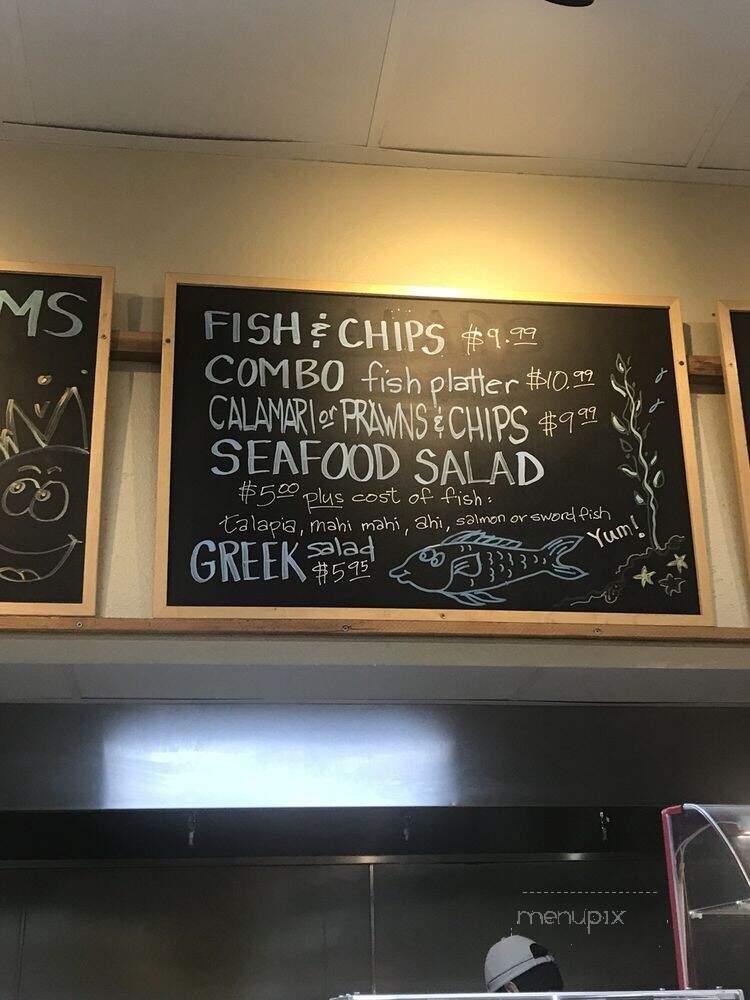 MS
FISH & CHIPS $9.99
COMBO fish platter $10.99
CALAMARI or PRAWNS & CHIPS $9.99
SEAFOOD SALAD
$5.00 plus cost of fish:
talapia, mahi mahi, ahi, salmon or sword fish
Yum!
GREEK salad
$5.95
menupix